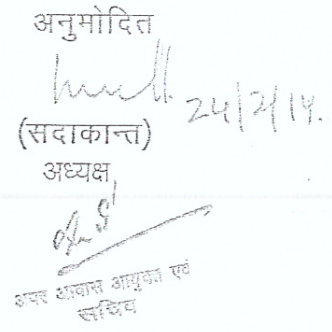 अनुमोदित
24/2/14.
(सदाकान्त)
अध्यक्ष
अपर आवास आयुक्त एवं
सचिव